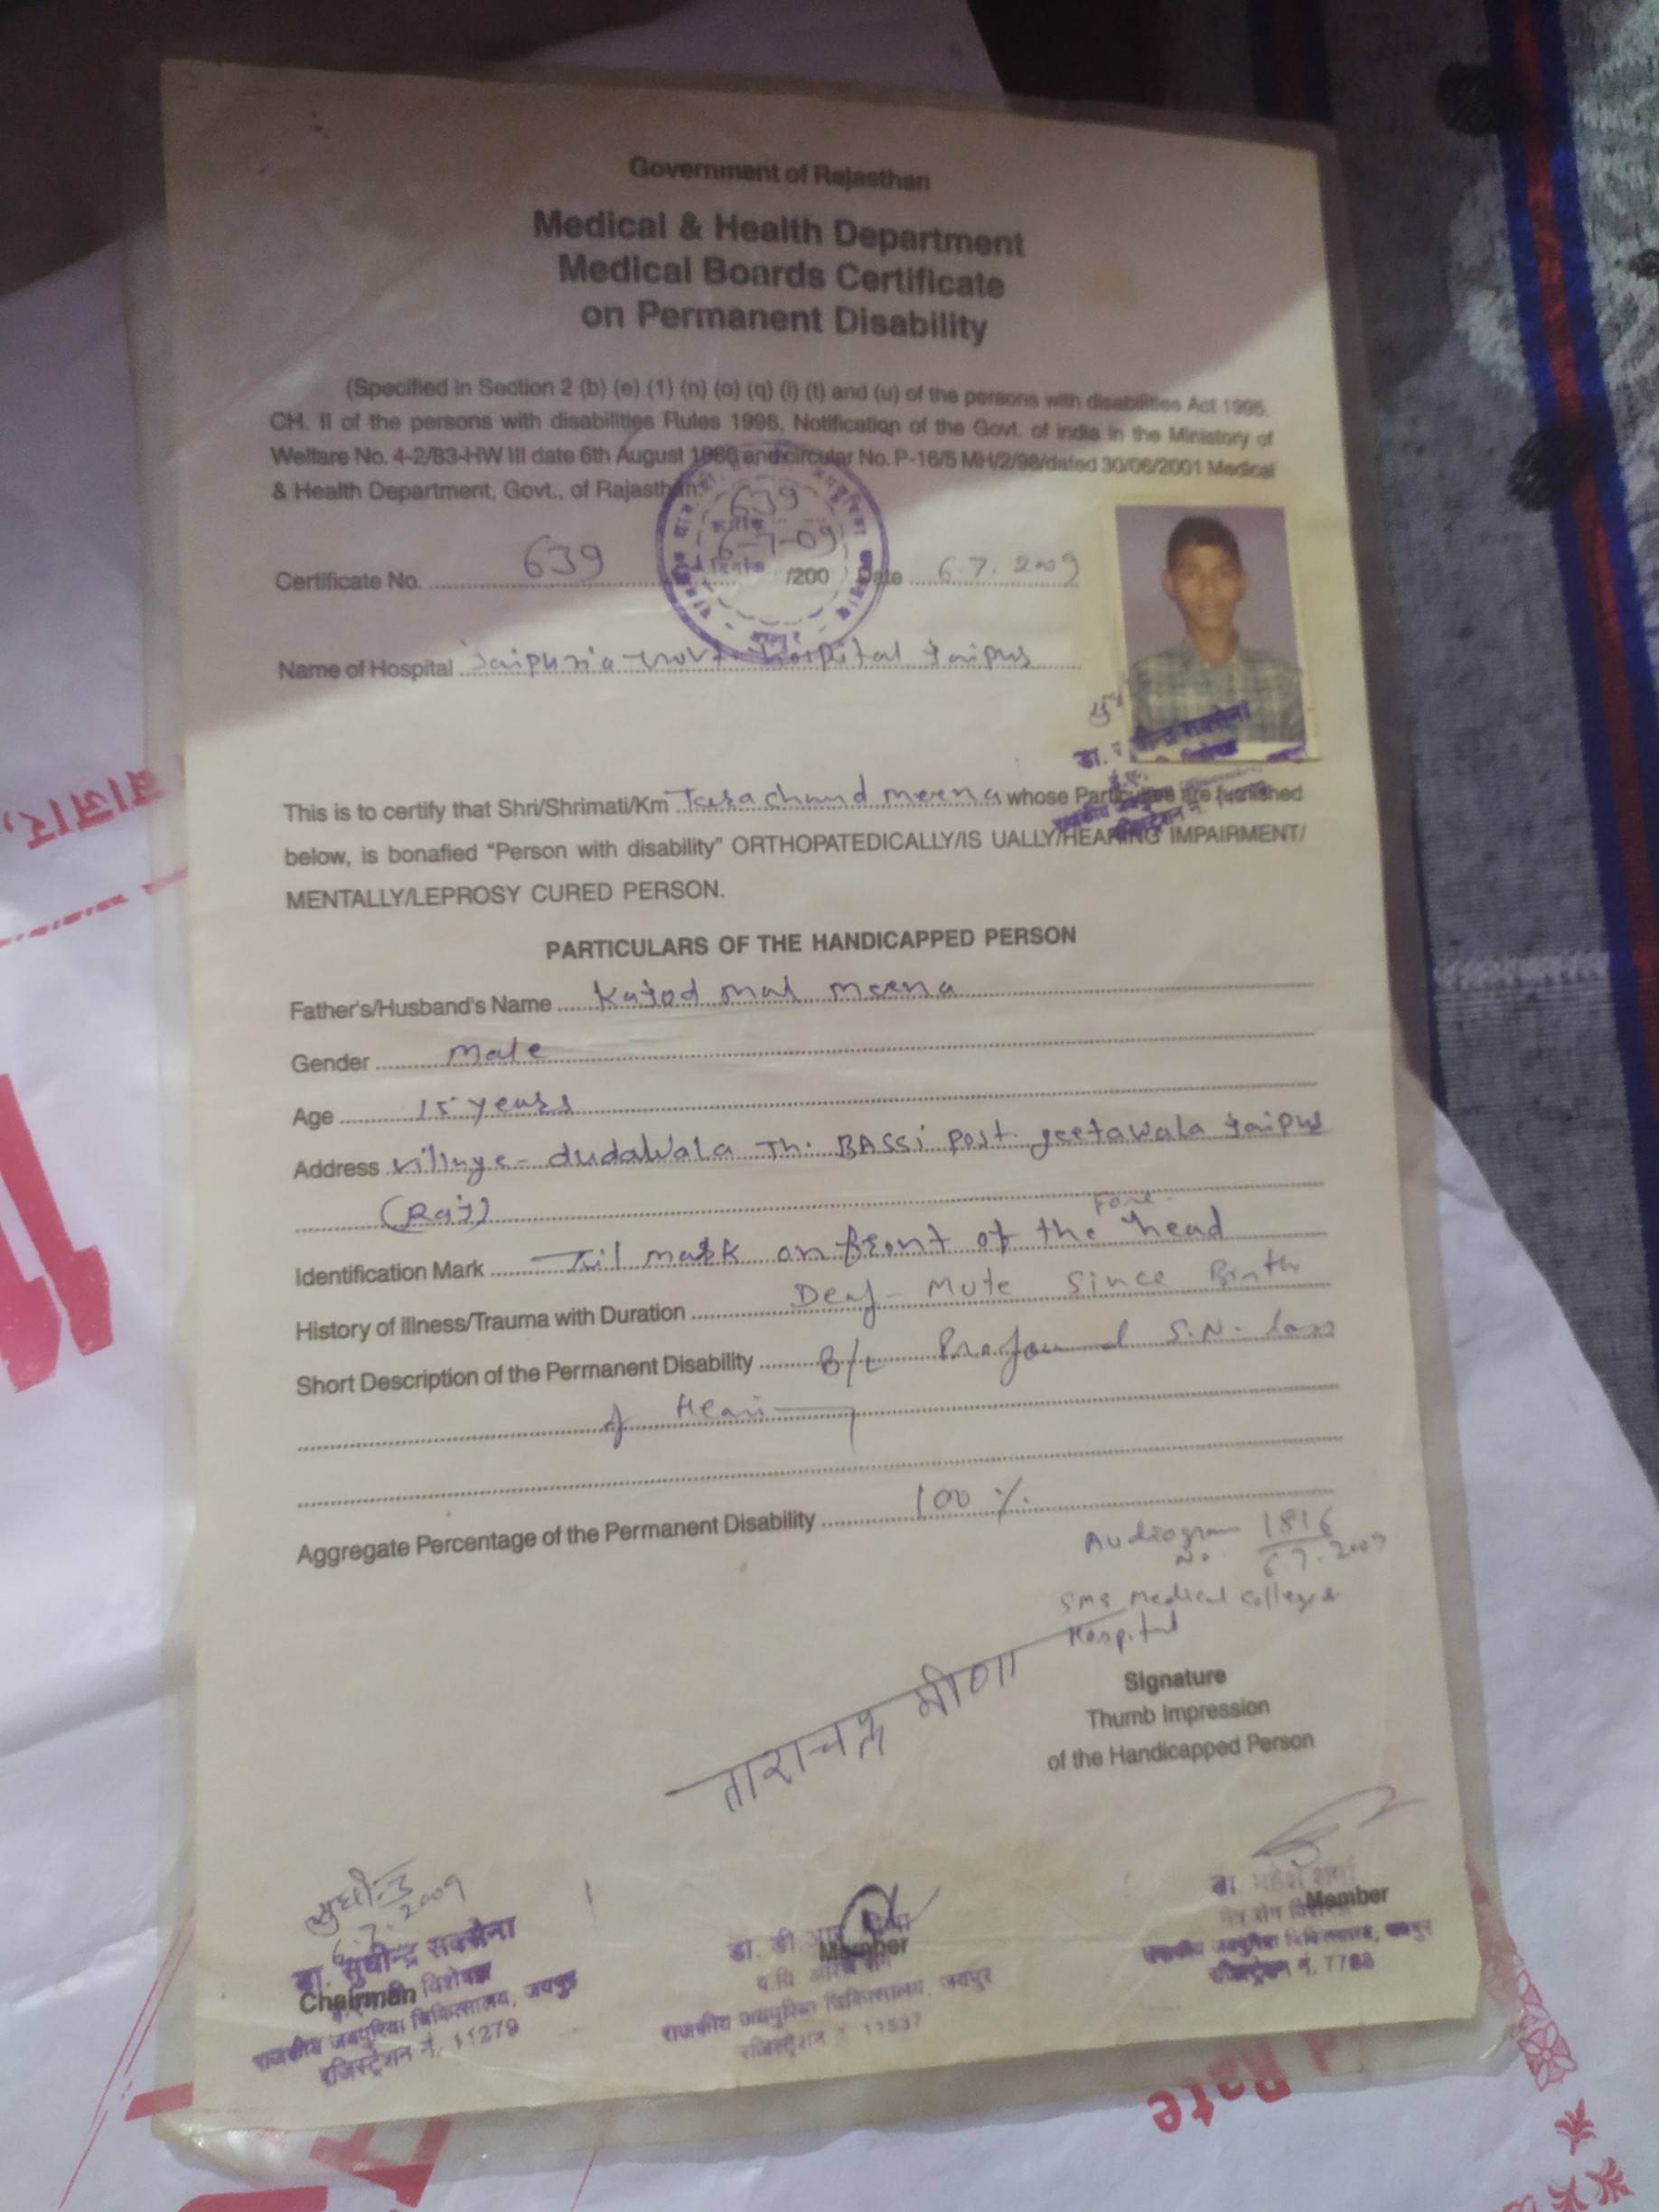 Government of Rajasthan
Medical & Health Department
Medical Boards Certificate
on Permanent Disability
(Specified in Section 2 (b) (e) (1) (n) (o) (q) (i) (t) and (u) of the persons with disabilities Act 1995,
CH. II of the persons with disabilities Rules 1996, Notification of the Govt. of India in the Ministory of
Welfare No. 4-2/83-HW III date 6th August 1986 and circular No. P-16/5 MH/2/98/dated 30/06/2001 Medical
& Health Department, Govt., of Rajasthan.
639
6-7-09
Certificate No. 639 /200 Date 6.7.2009
Name of Hospital Jaipuria Govt. Hospital Jaipur
This is to certify that Shri/Shrimati/Km Tarachand meena whose Particulars are furnished
below, is bonafied "Person with disability" ORTHOPATEDICALLY/IS UALLY/HEARING IMPAIRMENT/
MENTALLY/LEPROSY CURED PERSON.
PARTICULARS OF THE HANDICAPPED PERSON
Father's/Husband's Name Kajod mal meena
Gender male
Age 15 years
Address village - dudawala Th. BASSi post. geetawala Jaipur
(Raj)
Fore
Identification Mark Til mark on front of the head
History of illness/Trauma with Duration Deaf - Mute Since Birth
Short Description of the Permanent Disability B/L Profound S.N. loss
of Hearing
Aggregate Percentage of the Permanent Disability 100 %
Audiogram No 1816
6.7.2009
SMS Medical College &
Hospital
ताराचन्द्र मीणा
Signature
Thumb Impression
of the Handicapped Person
सुधीन्द्र
6.7.2009
डा. सुधीन्द्र सक्सेना
Chairman विशेषज्ञ
राजकीय जयपुरिया चिकित्सालय, जयपुर
रजिस्ट्रेशन नं. 11279
डा. डी. आर.
Member
राजकीय जयपुरिया चिकित्सालय, जयपुर
रजिस्ट्रेशन नं. 11537
डा. महेश शर्मा
Member
नेत्र रोग विशेषज्ञ
राजकीय जयपुरिया चिकित्सालय, जयपुर
रजिस्ट्रेशन नं. 7788
Rate